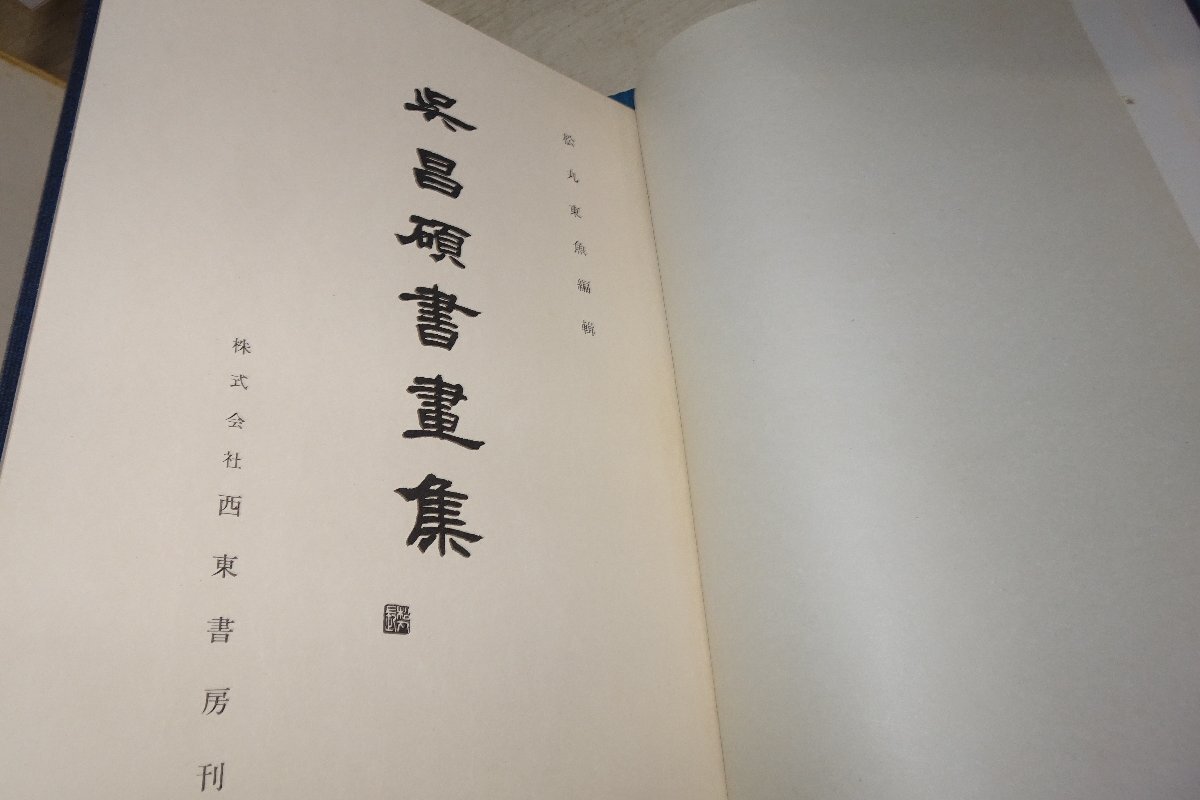 松丸東魚編輯
吳昌碩書畫集
株式会社西東書房刊